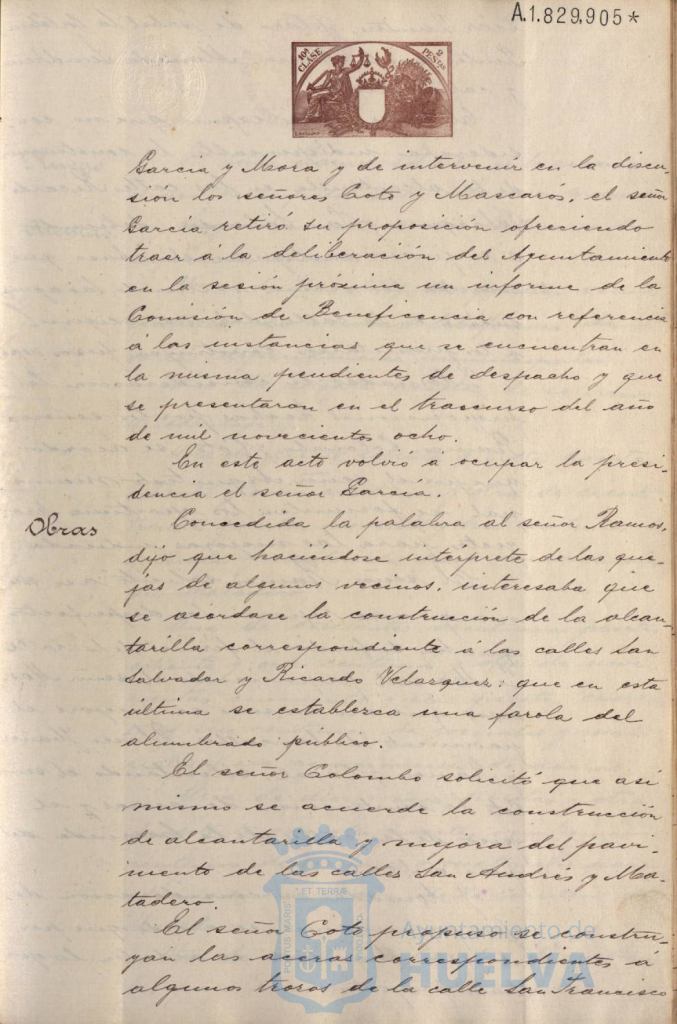 A.1.829.905*
10ª CLASE 2 PESTAS
García y Mora y de intervenir en la discu-
sión los señores Coto y Mascarós, el señor
García retiró su proposición ofreciendo
traer á la deliberación del Ayuntamiento
en la sesión próxima un informe de la
Comisión de Beneficencia con referencia
á las instancias que se encuentran en
la misma pendientes de despacho y que
se presentaron en el trascurso del año
de mil novecientos ocho.
En este acto volvió á ocupar la presi-
dencia el señor García.
Obras
Concedida la palabra al señor Ramos,
dijo que haciéndose intérprete de las que-
jas de algunos vecinos, interesaba que
se acordase la construcción de la alcan-
tarilla correspondiente á las calles San
Salvador y Ricardo Velazquez; que en esta
última se establezca una farola del
alumbrado público.
El señor Colombo solicitó que así
mismo se acuerde la construcción
de alcantarilla y mejora del pavi-
mento de las calles San Andrés y Ma-
tadero.
El señor Coto propuso se constru-
yan las aceras correspondientes á
algunos trozos de la calle San Francisco
PORTUS MARIS ET TERRAE CUSTODIA
Ayuntamiento de
HUELVA